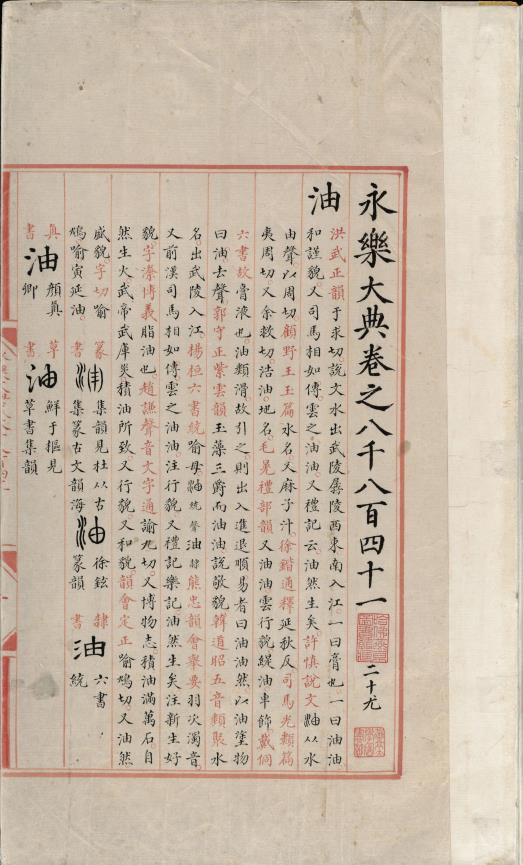 永樂大典卷之八千八百四十一 二十尤
油 洪武正韻于求切說文水出武陵孱陵西東南入江一曰膏也一曰油油
和謹貌又司馬相如傳雲之油油又禮記云油然生矣許慎說文油从水
由聲以周切顧野王玉篇水名又麻子汁徐鍇通釋延狄反司馬光類篇
夷周切又余救切浩油地名毛晃禮部韻又油油雲行貌緹油車飾戴侗
六書故膏液也油類滑故引之則出入進退順易者曰油油然以油塗物
曰油去聲郭守正紫雲韻玉藻三爵而油油說敬貌韓道昭五音類聚水
名出武陵入江楊桓六書統喻母油統聲油隸熊忠韻會舉要羽次濁音
又前漢司馬相如傳雲之油油注行貌又禮記樂記油然生矣注新生好
貌字潫博義脂油也趙謙聲音文字通諭尤切又博物志積油滿萬石自
然生火武帝武庫災積油所致又行貌又和貌韻會定正喻鳩切又油然
盛貌字切喻鳩喻寅延油 篆書 油 集韻見杜从古集篆古文韻海 油 徐鉉篆韻 隸書 油 六書統
真書 油 顏真卿 草書 油 鮮于樞見草書集韻